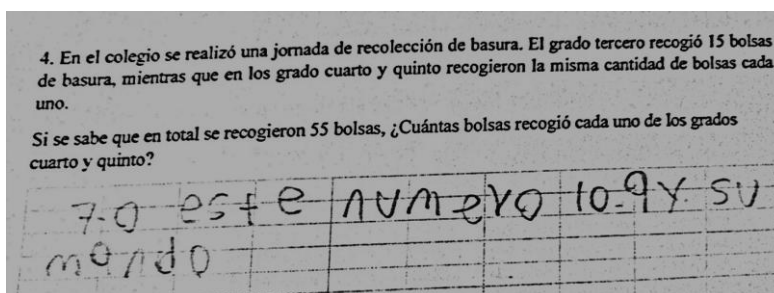 4. En el colegio se realizó una jornada de recolección de basura. El grado tercero recogió 15 bolsas
de basura, mientras que en los grado cuarto y quinto recogieron la misma cantidad de bolsas cada
uno.
Si se sabe que en total se recogieron 55 bolsas, ¿Cuántas bolsas recogió cada uno de los grados
cuarto y quinto?
este numero 10.9 y su
mando